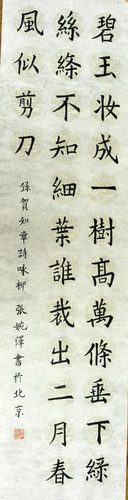 碧玉妝成一樹高萬條垂下綠
絲絛不知細葉誰裁出二月春
風似剪刀
錄賀知章詩咏柳 張婉澤書於北京